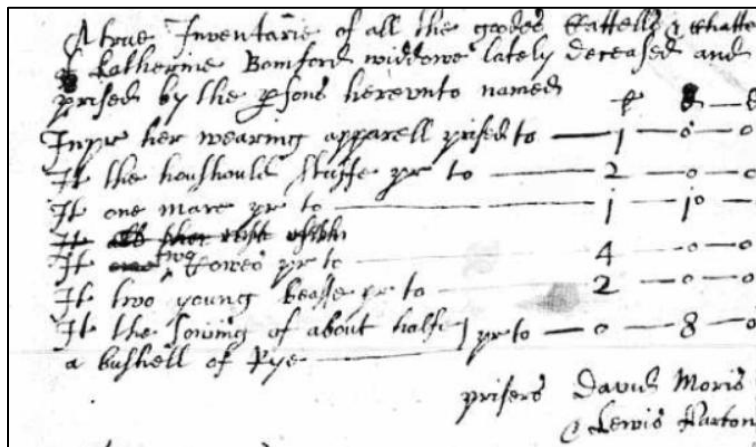 A true Inventarie of all the goodes Cattells & chatte
of Katherine Bomford widdowe lately deceased and
prised by the psons herevnto named
Inpr her wearing apparell prised to — 1 — 0 — 0
It the houshould stuffe pr to — 2 — 0 — 0
It one mare pr to — 1 — 10 —
It
It two Cowes pr to — 4 — 0 — 0
It two young beasse pr to — 2 — 0 — 0
It the soning of about halfe pr to — 0 — 8 — 0
a bushell of Rye
prisers David Moris
& Lewis Parton